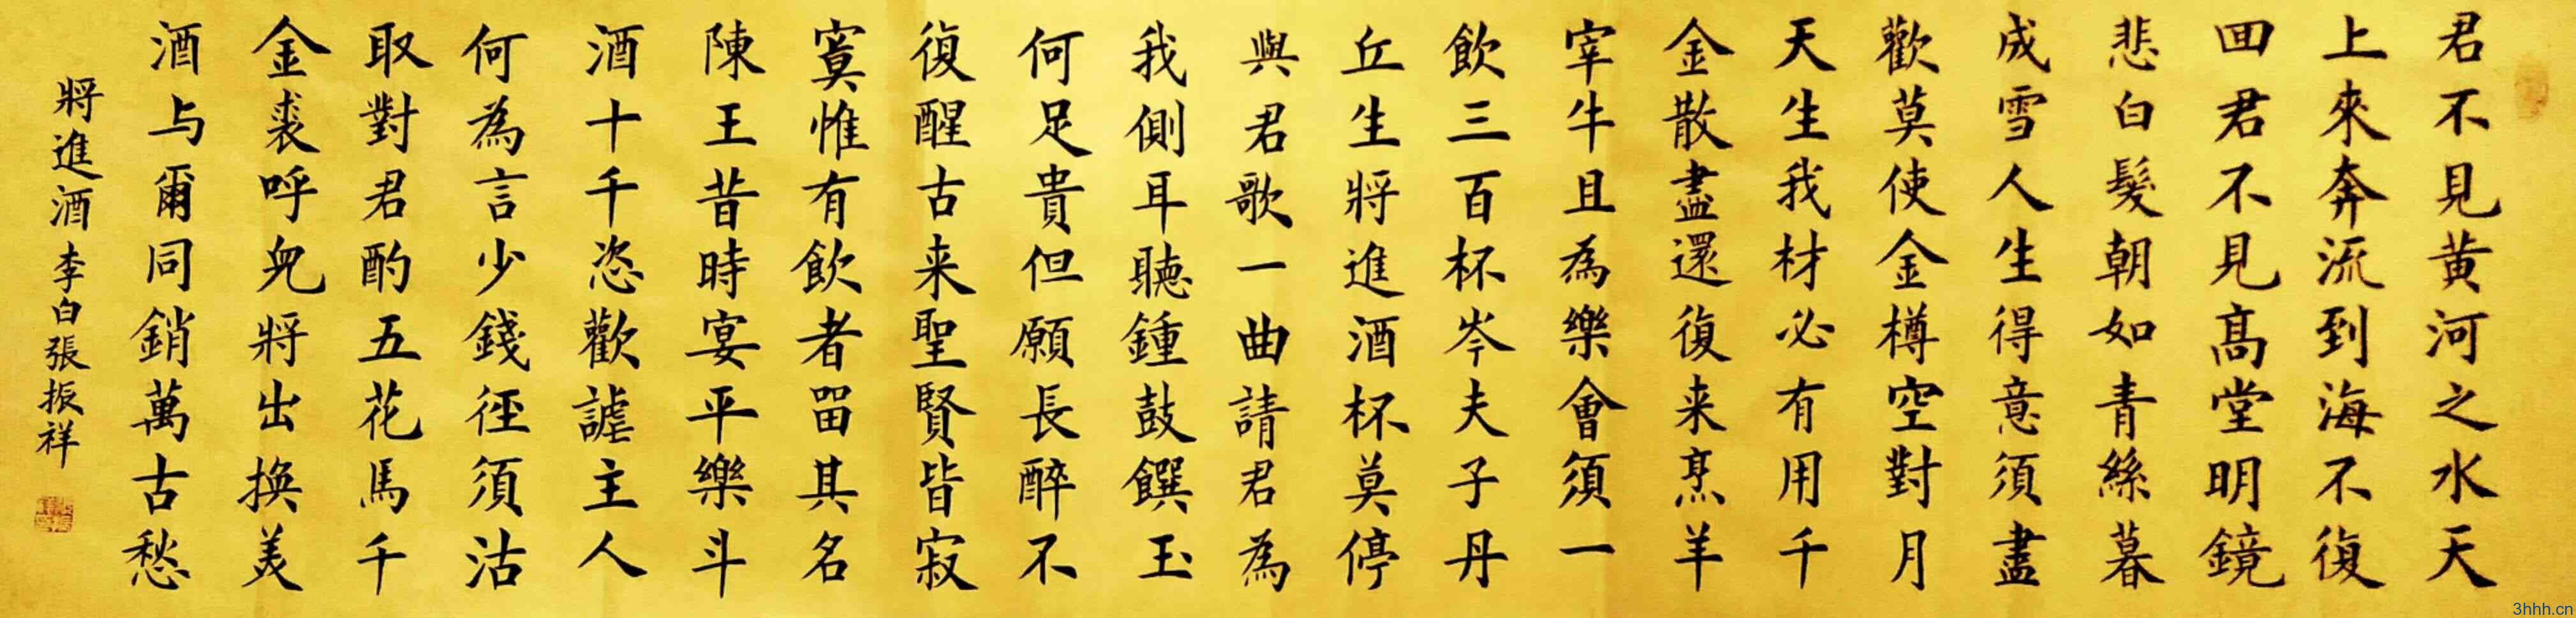 君不見黄河之水天
上來奔流到海不復
回君不見髙堂明鏡
悲白髮朝如青絲暮
成雪人生得意須盡
歡莫使金樽空對月
天生我材必有用千
金散盡還復来烹羊
宰牛且為樂會須一
飲三百杯岑夫子丹
丘生將進酒杯莫停
與君歌一曲請君為
我側耳聽鍾鼓饌玉
何足貴但願長醉不
復醒古来聖賢皆寂
寞惟有飲者留其名
陳王昔時宴平樂斗
酒十千恣歡謔主人
何為言少錢徑須沽
取對君酌五花馬千
金裘呼兒將出換美
酒与爾同銷萬古愁
將進酒李白張振祥
3hhh.cn